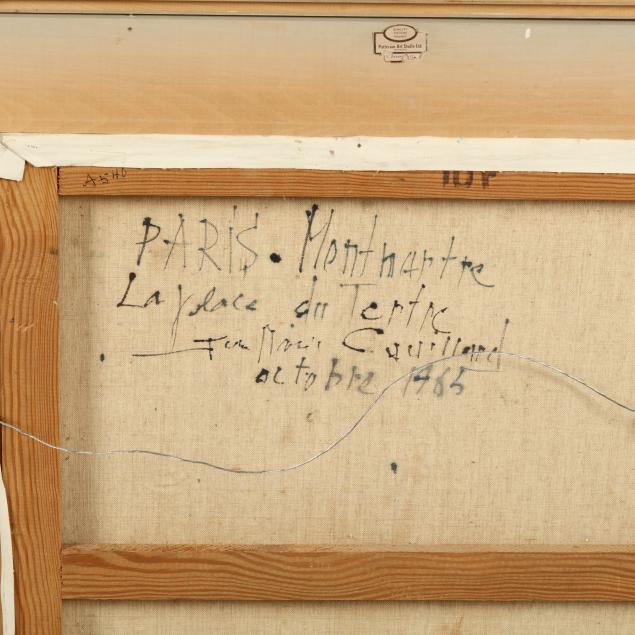 Patterson Art Studio Ltd
A5HO
PARIS. Montmartre
La place du Tertre
Jean Marie Couillard
octobre 1965